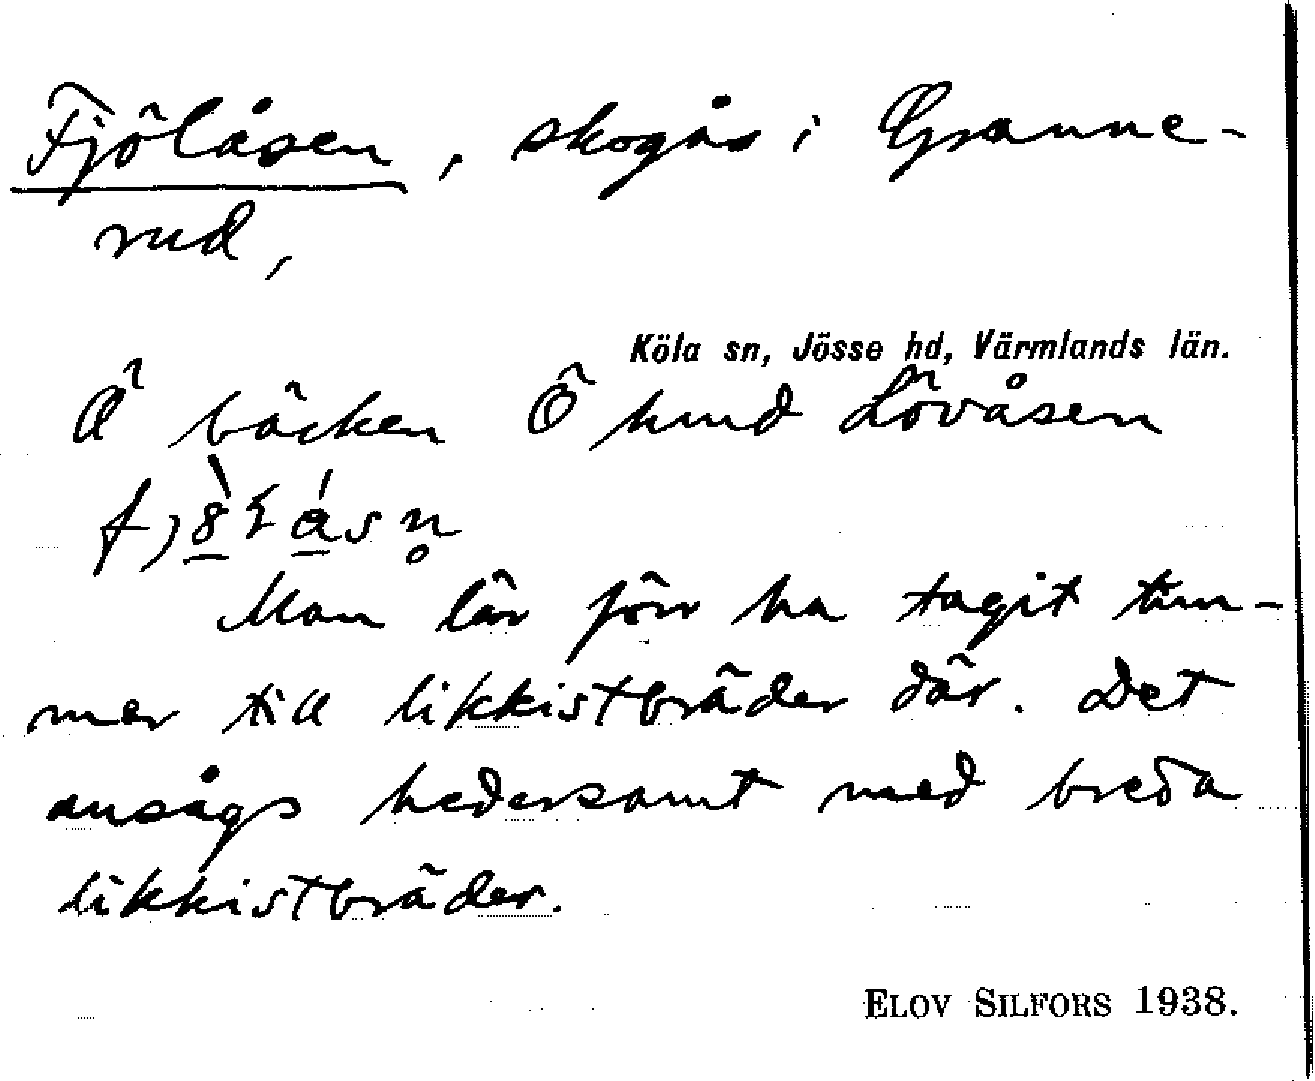 Fjölåsen, skogås i Granne-
rud,
Köla sn, Jösse hd, Värmlands län.
Ä bäcken Ö hmd Lövåsen
Man lär förr ha tagit tim-
mer till likkistbräder där. Det
ansågs hedersamt med breda
likkistbräder.
ELOV SILFORS 1938.